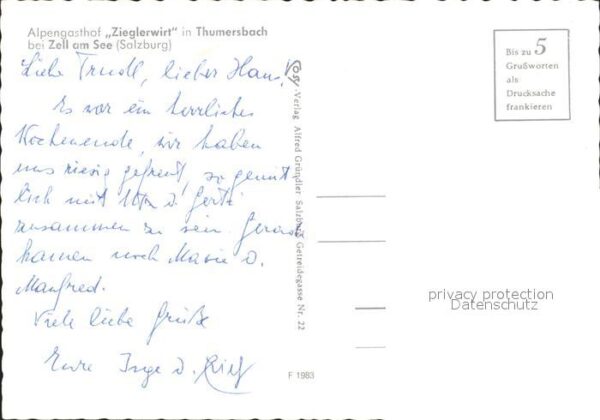 Alpengasthof „Zieglerwirt" in Thumersbach
bei Zell am See (Salzburg)
Liebe Trudl, lieber Hans!
Es war ein herrliches
Wochenende, wir haben
uns riesig gefreut, so gemüt-
lich mit u. Gerti
zusammen zu sein. Gerade
kamen noch Maria u.
Manfred.
Viele liebe Grüße
Eure Inge u.
Cosy-Verlag Alfred Gründler Salzburg Getreidegasse Nr. 22
Bis zu 5
Grußworten
als
Drucksache
frankieren
privacy protection
Datenschutz
F 1983